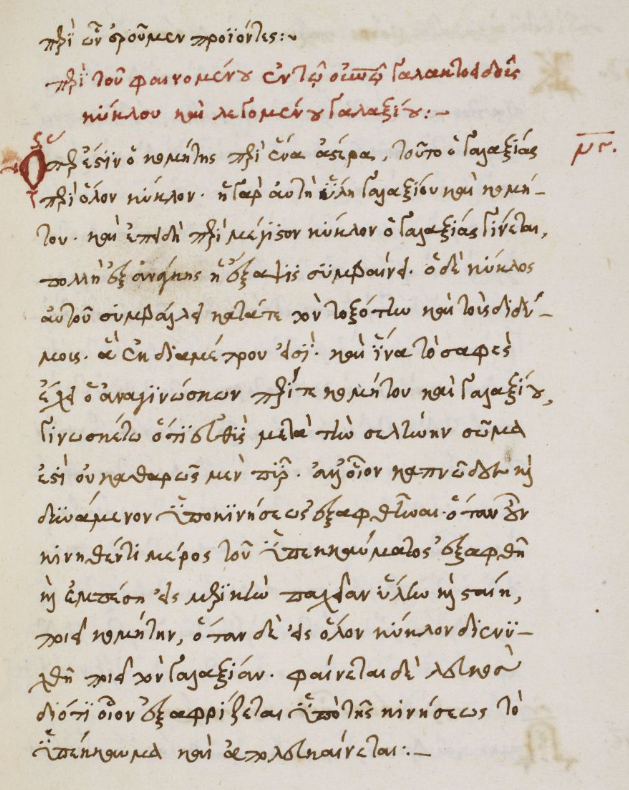 περὶ ὧν ἐροῦμεν προϊόντες:~
περὶ τοῦ φαινομένου ἐν τῷ οὐνῷ γαλακτοειδοῦς
κύκλου καὶ λεγομένου γαλαξίου:—
Ὅπερ ἐστὶν ὁ κομήτης περὶ ἕνα ἀστέρα, τοῦτο ὁ γαλαξίας μϛ.
περὶ ὅλον κύκλον· ἡ γὰρ αὐτὴ ὕλη γαλαξίου καὶ κομή-
του· καὶ ἐπειδὴ περὶ μέγιστον κύκλον ὁ γαλαξίας γίνεται,
πολλὴ ἐξ ἀνάγκης ἡ ἔξαψις συμβαίνει· ὁ δὲ κύκλος
αὐτοῦ συμβάλλει κατά τε τὸν τοξότην καὶ τοὺς διδύ-
μους· ἃ ἐκ διαμέτρου εἰσί· καὶ ἵνα τὸ σαφὲς
ἔχει ὁ ἀναγινώσκων περί τε κομήτου καὶ γαλαξίου,
γινωσκέτω ὅτι εὐθὺς μετὰ τὴν σελήνην σῶμα
ἐστὶ οὐ καθαρῶς μὲν πῦρ· ἀλλ' οἷον καπνῶδες καὶ
δυνάμενον ὑπὸ κινήσεως ἐξαφθῆναι· ὅταν οὖν
κινηθέντι μέρος τοῦ ὑπεκκαύματος ἐξαφθῆ
καὶ ἐμπέση εἰς μερικὴν παχεῖαν ὕλην καὶ στάση,
ποιεῖ κομήτην, ὅταν δὲ εἰς ὅλον κύκλον διενε-
χθῆ ποιεῖ τὸν γαλαξίαν· φαίνεται δὲ λευκὸς
διότι οἷον ἐξαφρίζεται ὑπὸ τῆς κινήσεως τὸ
ὑπέκκαυμα καὶ ἀπολευκαίνεται:—